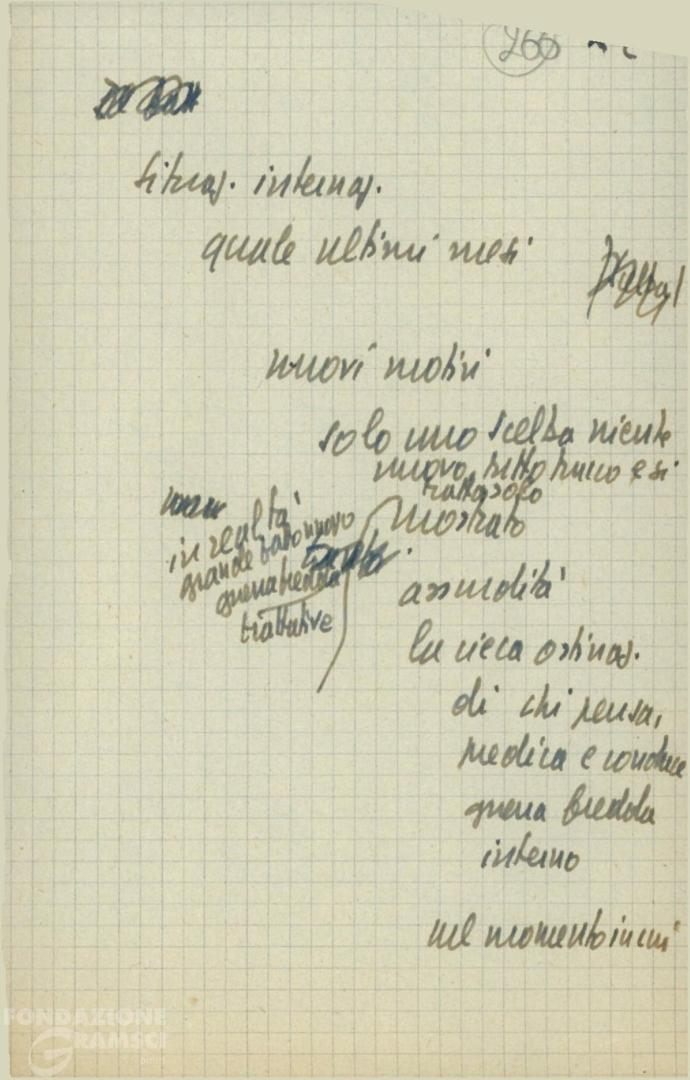 266
situaz. internaz.
quale ultimi mesi
nuovi motivi
solo uno scelba niente
nuovo, tutto trucco e si
tratta solo
mostrato
in realtà
grande fatto nuovo
guerra fredda
trattative
assurdità
la cieca ostinaz.
di chi pensa,
predica e conduce
guerra fredda
interno
nel momento in cui
FONDAZIONE
GRAMSCI